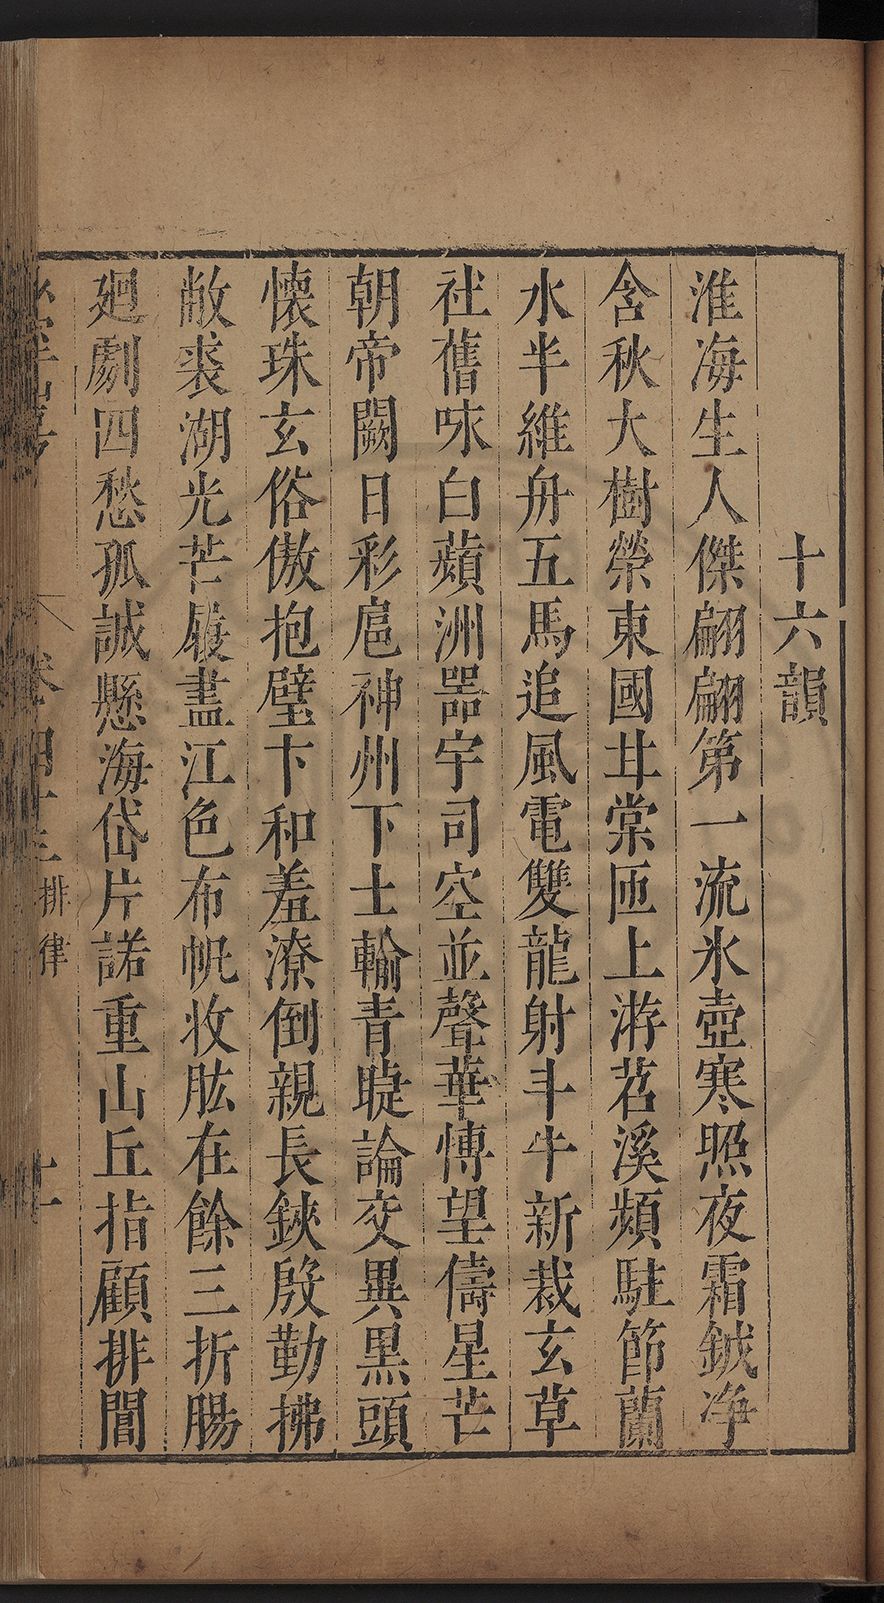 十六韻
淮海生人傑翩翩第一流氷壺寒照夜霜鋮净
含秋大樹榮東國甘棠匝上游苕溪頻駐節蘭
水半維舟五馬追風電雙龍射斗牛新裁玄草
社舊咏白蘋洲器宇司空並聲華博望儔星芒
朝帝闕日彩扈神州下士輸青睫論交異黒頭
懷珠玄俗傲抱璧卞和羞潦倒親長鋏殷勤拂
敝裘湖光芒屩盡江色布帆收肱在餘三折腸
廻劇四愁孤誠懸海岱片諾重山丘指顧排閶
排律